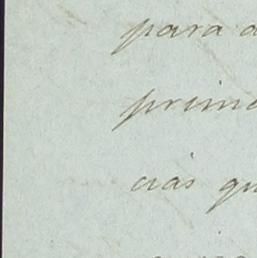 para a
prim
cias qu